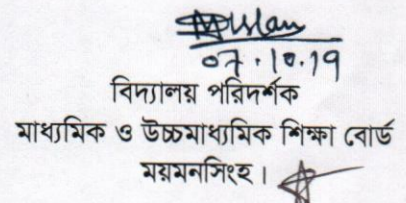 07.10.19
বিদ্যালয় পরিদর্শক
মাধ্যমিক ও উচ্চমাধ্যমিক শিক্ষা বোর্ড
ময়মনসিংহ।